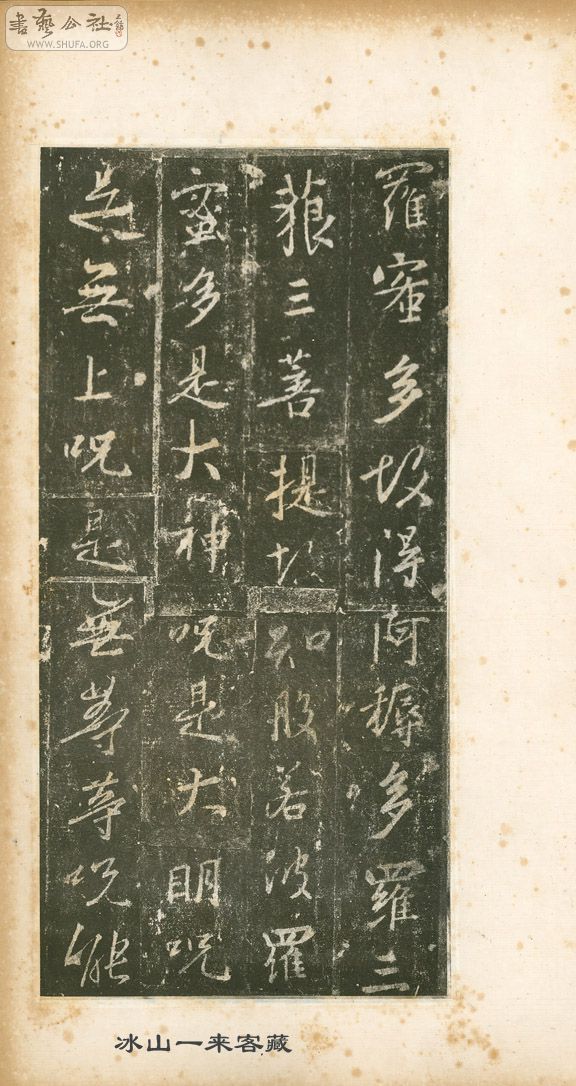 書藝公社
WWW.SHUFA.ORG
羅蜜多故得阿耨多羅三
藐三菩提故知般若波羅
蜜多是大神呪是大明呪
是無上呪是無等等呪能
冰山一来客藏